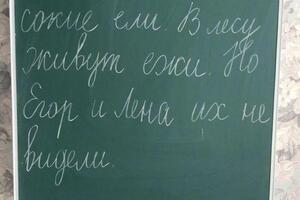 сокие ели. В лесу
живут ежи. Но
Егор и Лена их не
видели.